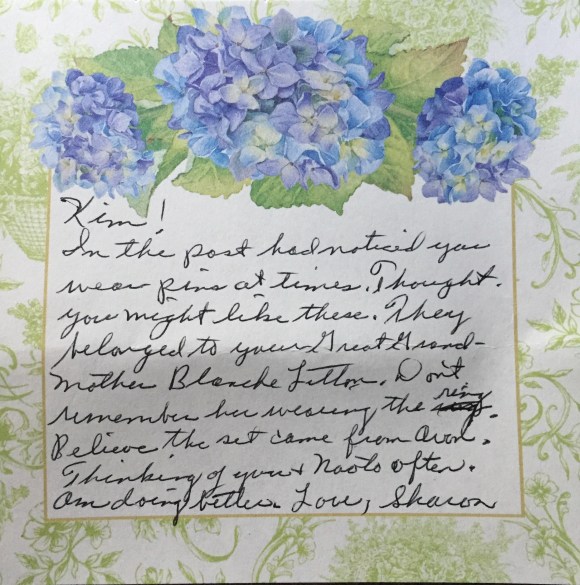 Kim!
In the past had noticed you
wear pins at times. Thought.
you might like these. They
belonged to your Great Grand-
mother Blanche Litton. Don't
remember her wearing the ring.
Believe the set came from Avon.
Thinking of you & Naoto often.
Am doing better. Love, Sharon